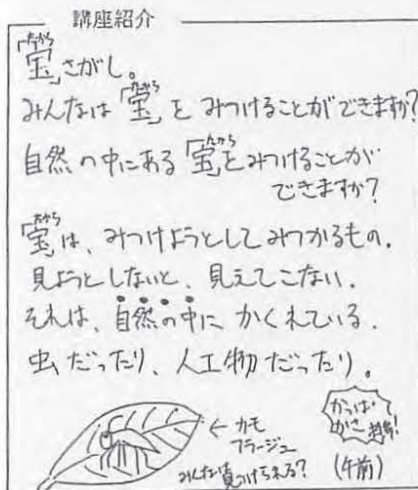 講座紹介
「宝」さがし。
みんなは「宝」をみつけることができますか?
自然の中にある「宝」をみつけることが
できますか?
「宝」は、みつけようとしてみつかるもの。
見ようとしないと、見えてこない。
それは、自然の中にかくれている。
虫だったり、人工物だったり。
←カモ
フラージュ
みんなは見つけられる?
かっぱ・
かさ
(午前)